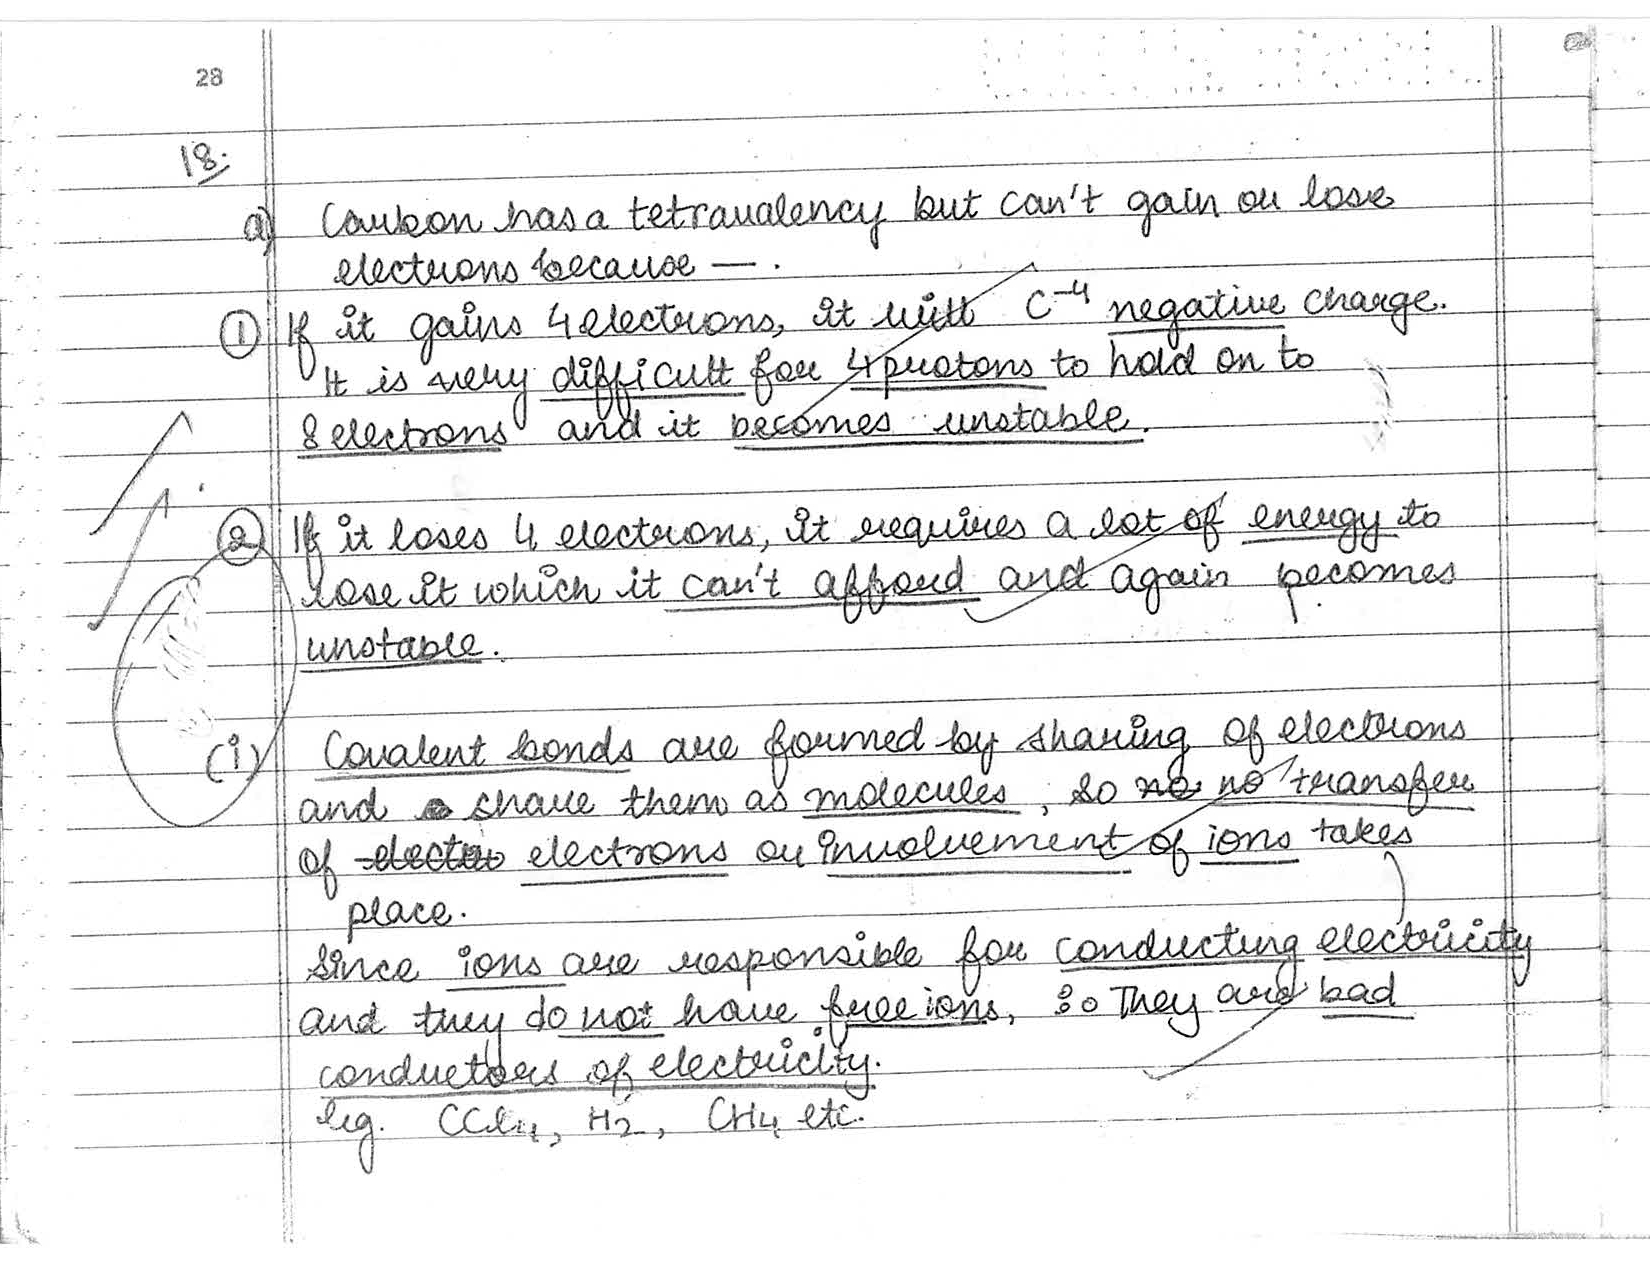 28
18.
a) Carbon has a tetravalency but can't gain or lose
electrons because — .
① If it gains 4 electrons, it will C⁻⁴ negative charge.
It is very difficult for 4 protons to hold on to
8 electrons and it becomes unstable.
② If it loses 4 electrons, it requires a lot of energy to
lose it which it can't afford and again becomes
unstable.
(i) Covalent bonds are formed by sharing of electrons
and share them as molecules, so no no transfer
of electro electrons or involvement of ions takes
place.
Since ions are responsible for conducting electricity
and they do not have free ions, so They are bad
conductors of electricity.
eg. CCl₄, H₂, CH₄ etc.